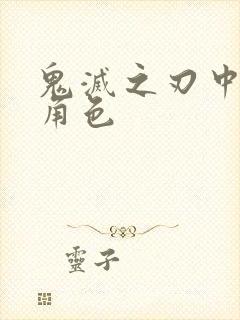 鬼滅之刃中
角色
靈子